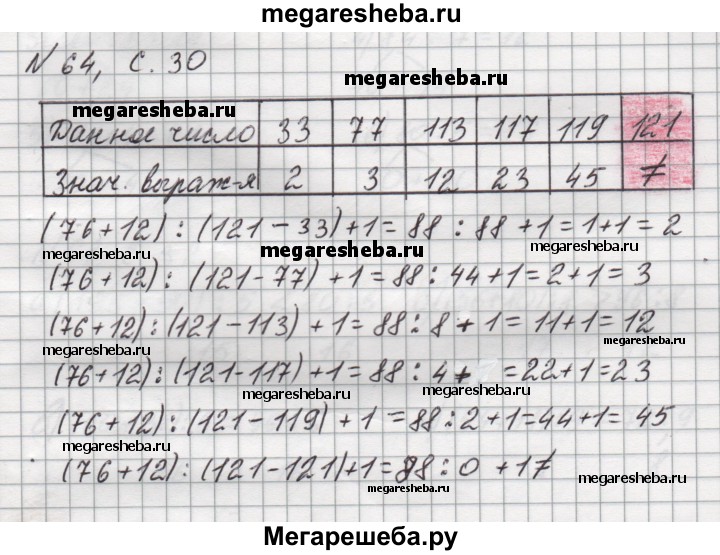 megaresheba.ru
№ 64, с. 30
megaresheba.ru
megaresheba.ru
Данное число 33 77 113 117 119 121
Знач. выраж-я 2 3 12 23 45 7
(76+12) : (121-33)+1=88 : 88 +1=1+1=2
megaresheba.ru
megaresheba.ru
(76+12) : (121-77) +1=88 : 44+1=2+1=3
megaresheba.ru
(76+12) : (121-113) +1=88 : 8+1=11+1=12
megaresheba.ru
megaresheba.ru
(76+12) : (121-117)+1=88 : 4+ =22+1=23
megaresheba.ru
megaresheba.ru
(76+12) : (121-119) +1=88 : 2+1=44+1=45
megaresheba.ru
megaresheba.ru
(76+12) : (121-121)+1=88 : 0 +1
megaresheba.ru
megaresheba.ru
Мегарешеба.ру